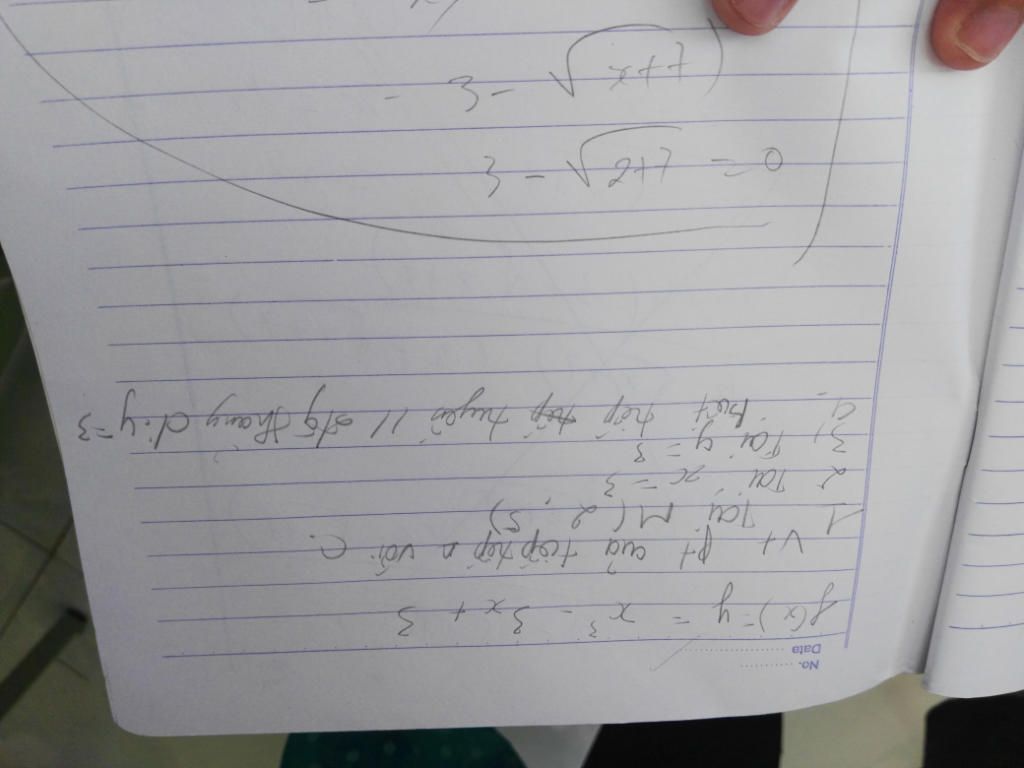 No. ............
Data ........................
f(x) = y = x³ - 3x + 3
Vt pt của tiếp tiếp n với C.
1 Tại M(2; 5)
2 Tại x = 3
3) Tại y = 3
4. Biết tiếp tiếp tuyến // đg thẳng d: y = 3
0 = √7+2 - 3
(√7+x - 3 -